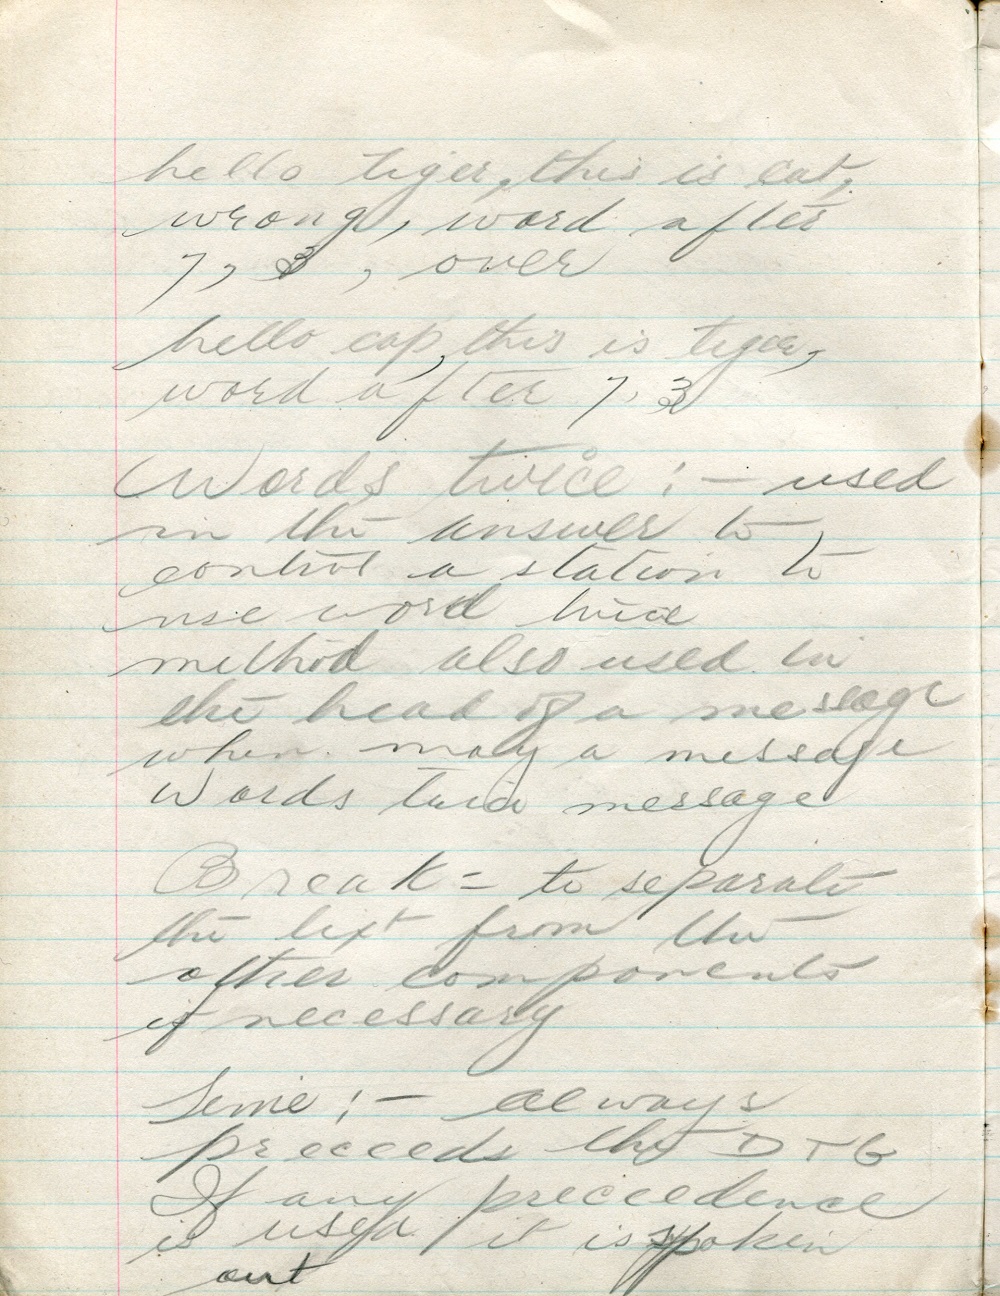 hello tiger, this is cat,
wrong, word after
7, 3, over
hello cap, this is tiger,
word after 7, 3
Words twice :— used
in the answer to
control a station to
use word twice
method also used in
the head of a message
when may a message
Words twice message
Break = to separate
the text from the
other components
if necessary
Time :— always
preceeds the DTG
If any preceedence
is used it is spoken
out